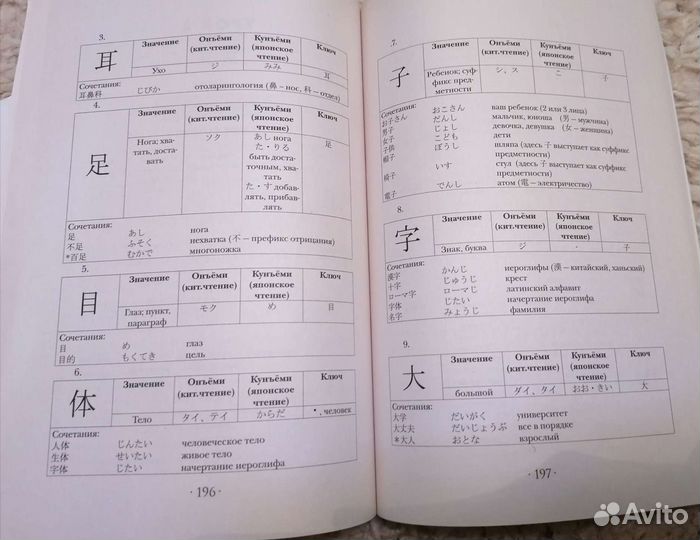 3.
耳
Значение Онъёми (кит.чтение) Кунъёми (японское чтение) Ключ
Ухо ジ みみ 耳
Сочетания:
耳鼻科 じびか отоларингология (鼻 – нос, 科 – отдел)
4.
足
Значение Онъёми (кит.чтение) Кунъёми (японское чтение) Ключ
Нога; хва- ソク あし нога 足
тать, доста- た・りる
вать быть доста-
точным, хва-
тать
た・す добав-
лять, прибав-
лять
Сочетания:
足 あし нога
不足 ふそく нехватка (不 – префикс отрицания)
*百足 むかで многоножка
5.
目
Значение Онъёми (кит.чтение) Кунъёми (японское чтение) Ключ
Глаз; пункт, モク め 目
параграф
Сочетания:
目 め глаз
目的 もくてき цель
6.
体
Значение Онъёми (кит.чтение) Кунъёми (японское чтение) Ключ
Тело タイ、テイ からだ *, человек
Сочетания:
人体 じんたい человеческое тело
生体 せいたい живое тело
字体 じたい начертание иероглифа
· 196 ·
7.
子
Значение Онъёми (кит.чтение) Кунъёми (японское чтение) Ключ
Ребенок; суф- シ、ス こ 子
фикс пред-
метности
Сочетания:
お子さん おこさん ваш ребенок (2 или 3 лица)
男子 だんし мальчик, юноша (男 – мужчина)
女子 じょし девочка, девушка (女 – женщина)
子供 こども дети
帽子 ぼうし шляпа (здесь 子 выступает как суффикс
предметности)
椅子 いす стул (здесь 子 выступает как суффикс
предметности)
電子 でんし атом (電 – электричество)
8.
字
Значение Онъёми (кит.чтение) Кунъёми (японское чтение) Ключ
Знак, буква ジ - 子
Сочетания:
漢字 かんじ иероглифы (漢 – китайский, ханьский)
十字 じゅうじ крест
ローマ字 ローマじ латинский алфавит
字体 じたい начертание иероглифа
名字 みょうじ фамилия
9.
大
Значение Онъёми (кит.чтение) Кунъёми (японское чтение) Ключ
большой ダイ、タイ おお・きい 大
Сочетания:
大学 だいがく университет
大丈夫 だいじょうぶ все в порядке
*大人 おとな взрослый
· 197 ·
Avito